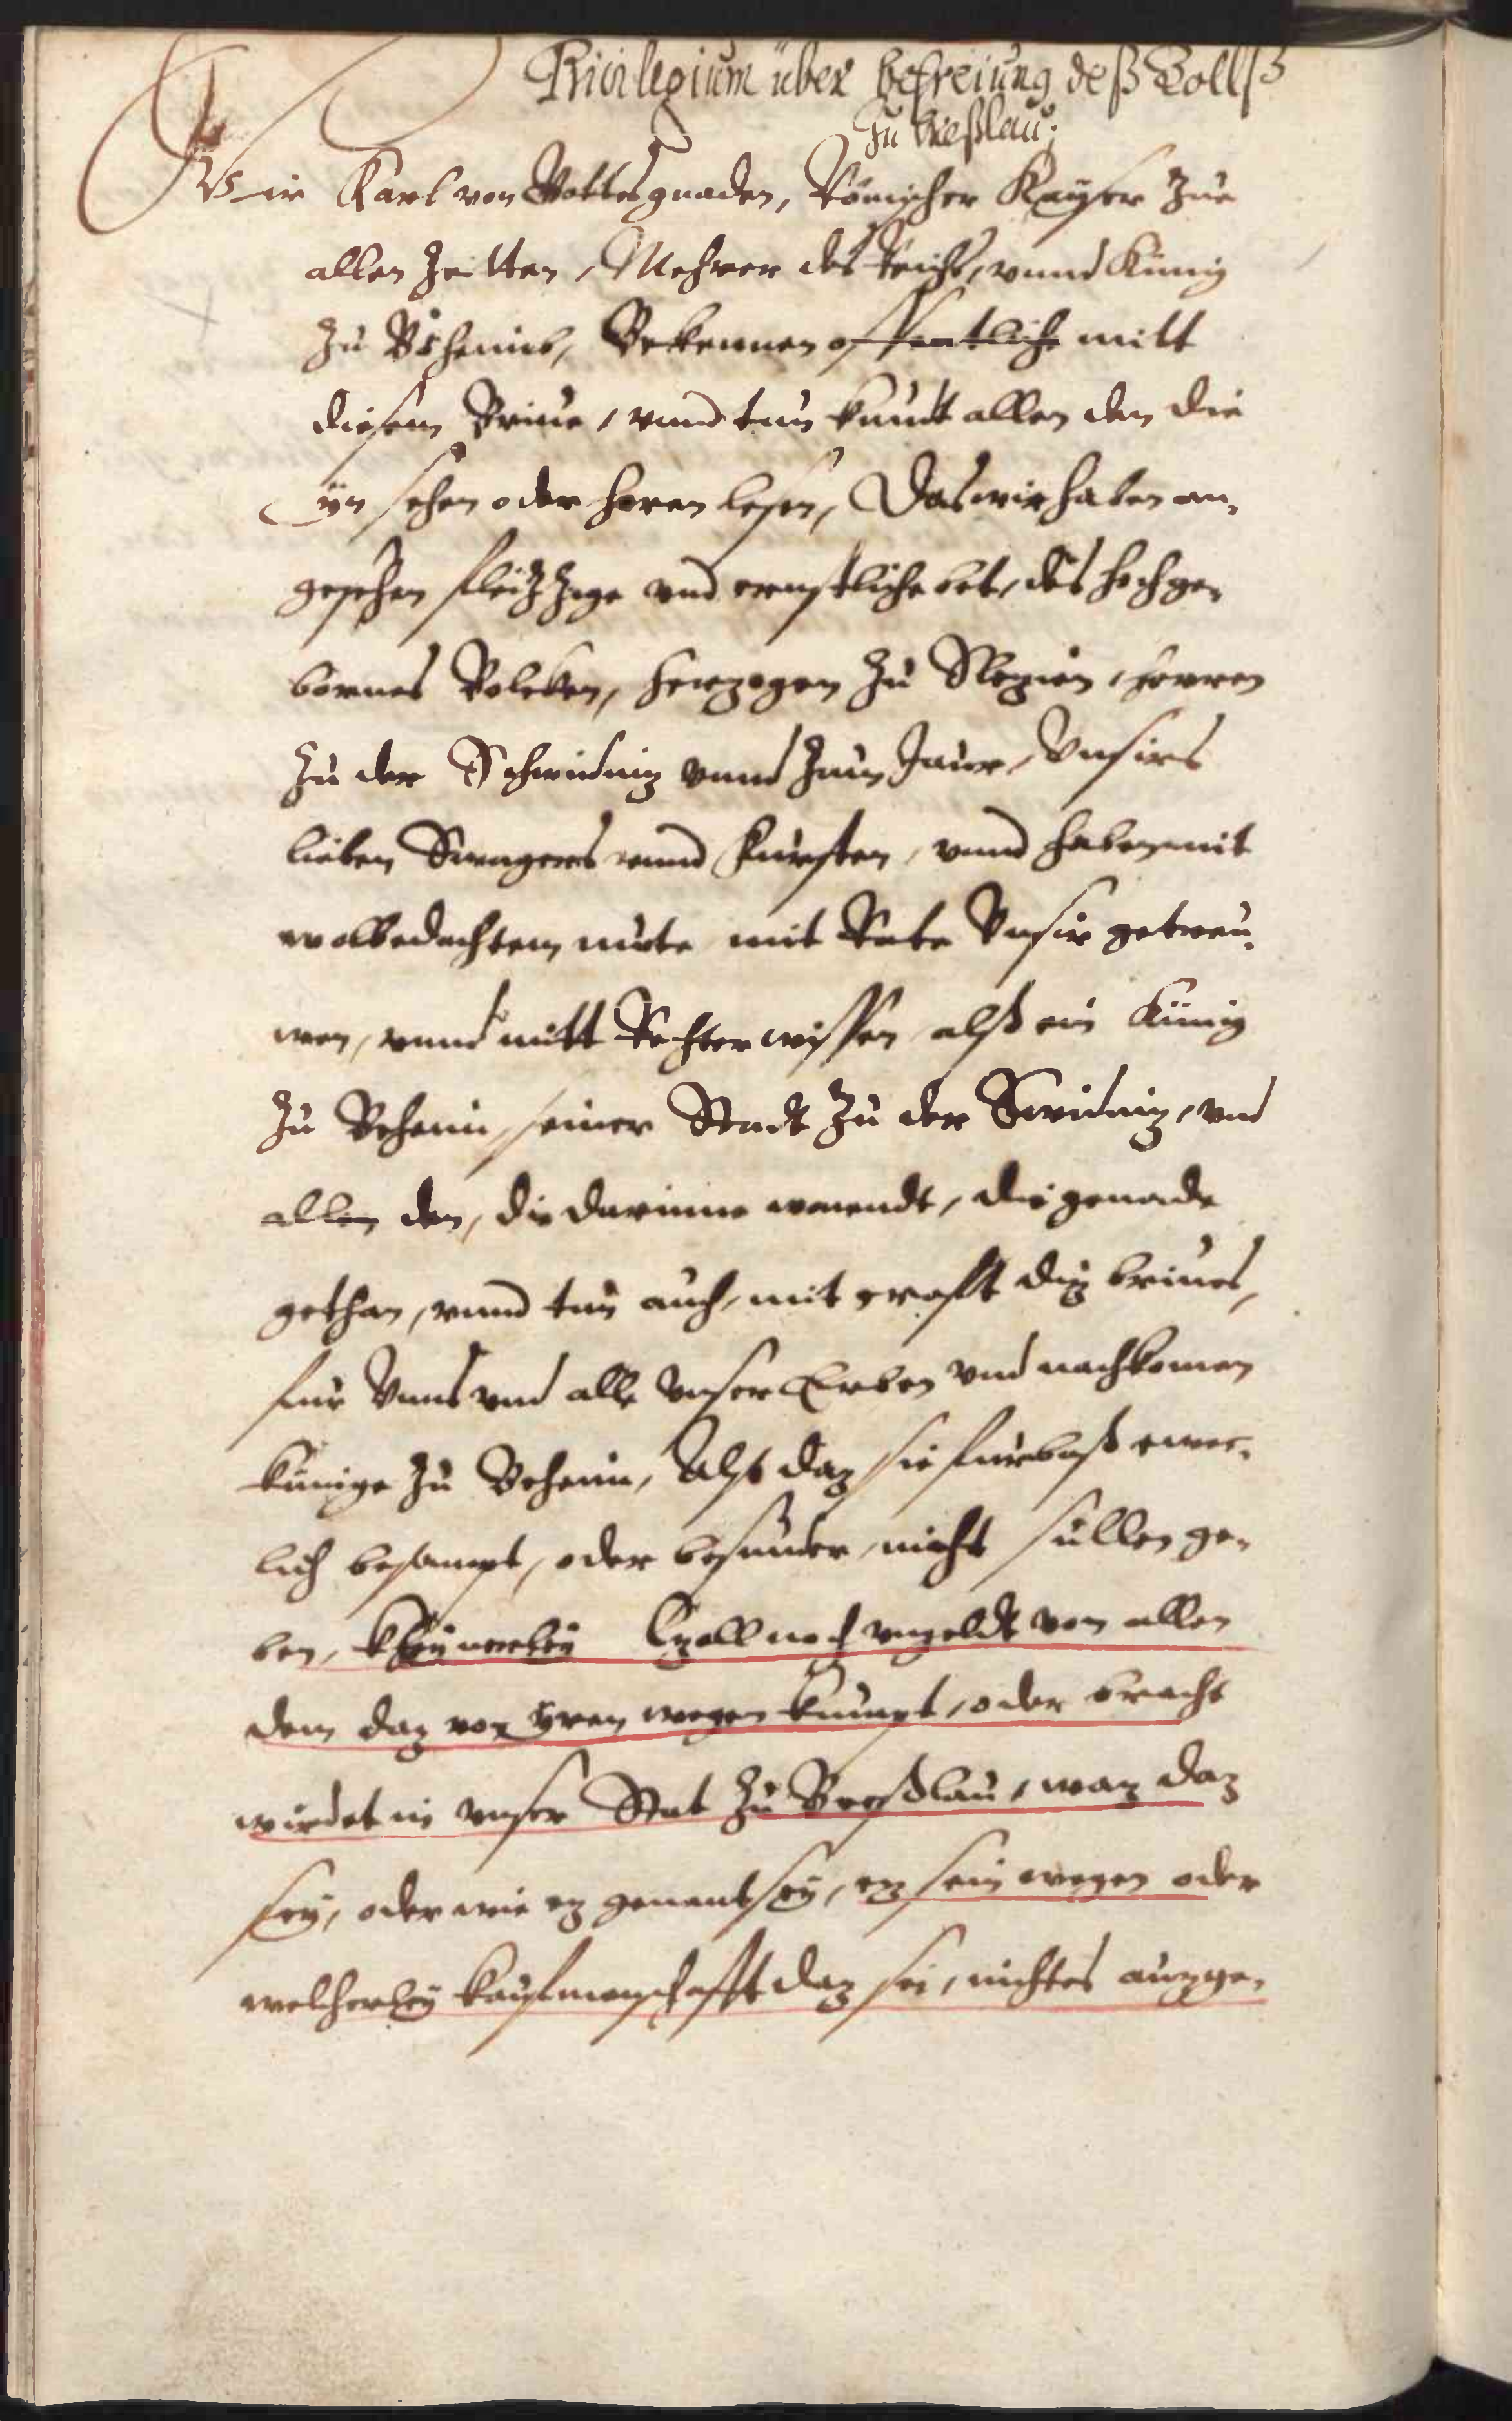 Privilegium über befreiung deß Zollß
Zu Breßlau:
Wir Karl von Gottes gnaden, Römischer Kayser Zue
allen Zeitten, Mehrer des Reichs, vnnd Künig
Zu Böheimb, Bekennen offentliche mitt
diesem Briue, vnnd tun kundt allen den die
yn sehen oder horen lesen, Das wir haben an,
gesehen fleizzige vnd ernstliche bet, des hochge,
bornes Bolcken, Herzogen Zu Slezien, Herren
Zu der Schwidniz vnnd Zum Jauer, Vnsires
lieben Swagers vnnd Fursten, vnnd haben mit
wolbedachtem mute mit Rate Vnsir getreu,
wen, vnnd mitt Rechter wissen alß ein Künig
Zu Behem, seiner Stadt Zu der Swidniz, vnd
allen den, die darinne wonendt, die genade
gethan, vnnd tun auch, mit craft diz briues,
fur Vnns vnd alle vnser Erben vnd nachkomen
künige Zu Behem, Also daz sie furbaß ewec,
lich besampt, oder besunder, nicht sullen ge,
ben, kheynerley Czoll noch vngeldt von allen
dem daz von yren wegen kumpt, oder bracht
wirdet in vnser Stat Zu Breßlau, waz daz
sey, oder wie ez genant sey, ez sein wegen oder
welcherley kaufmanschafft daz sei, nichtes auzge,